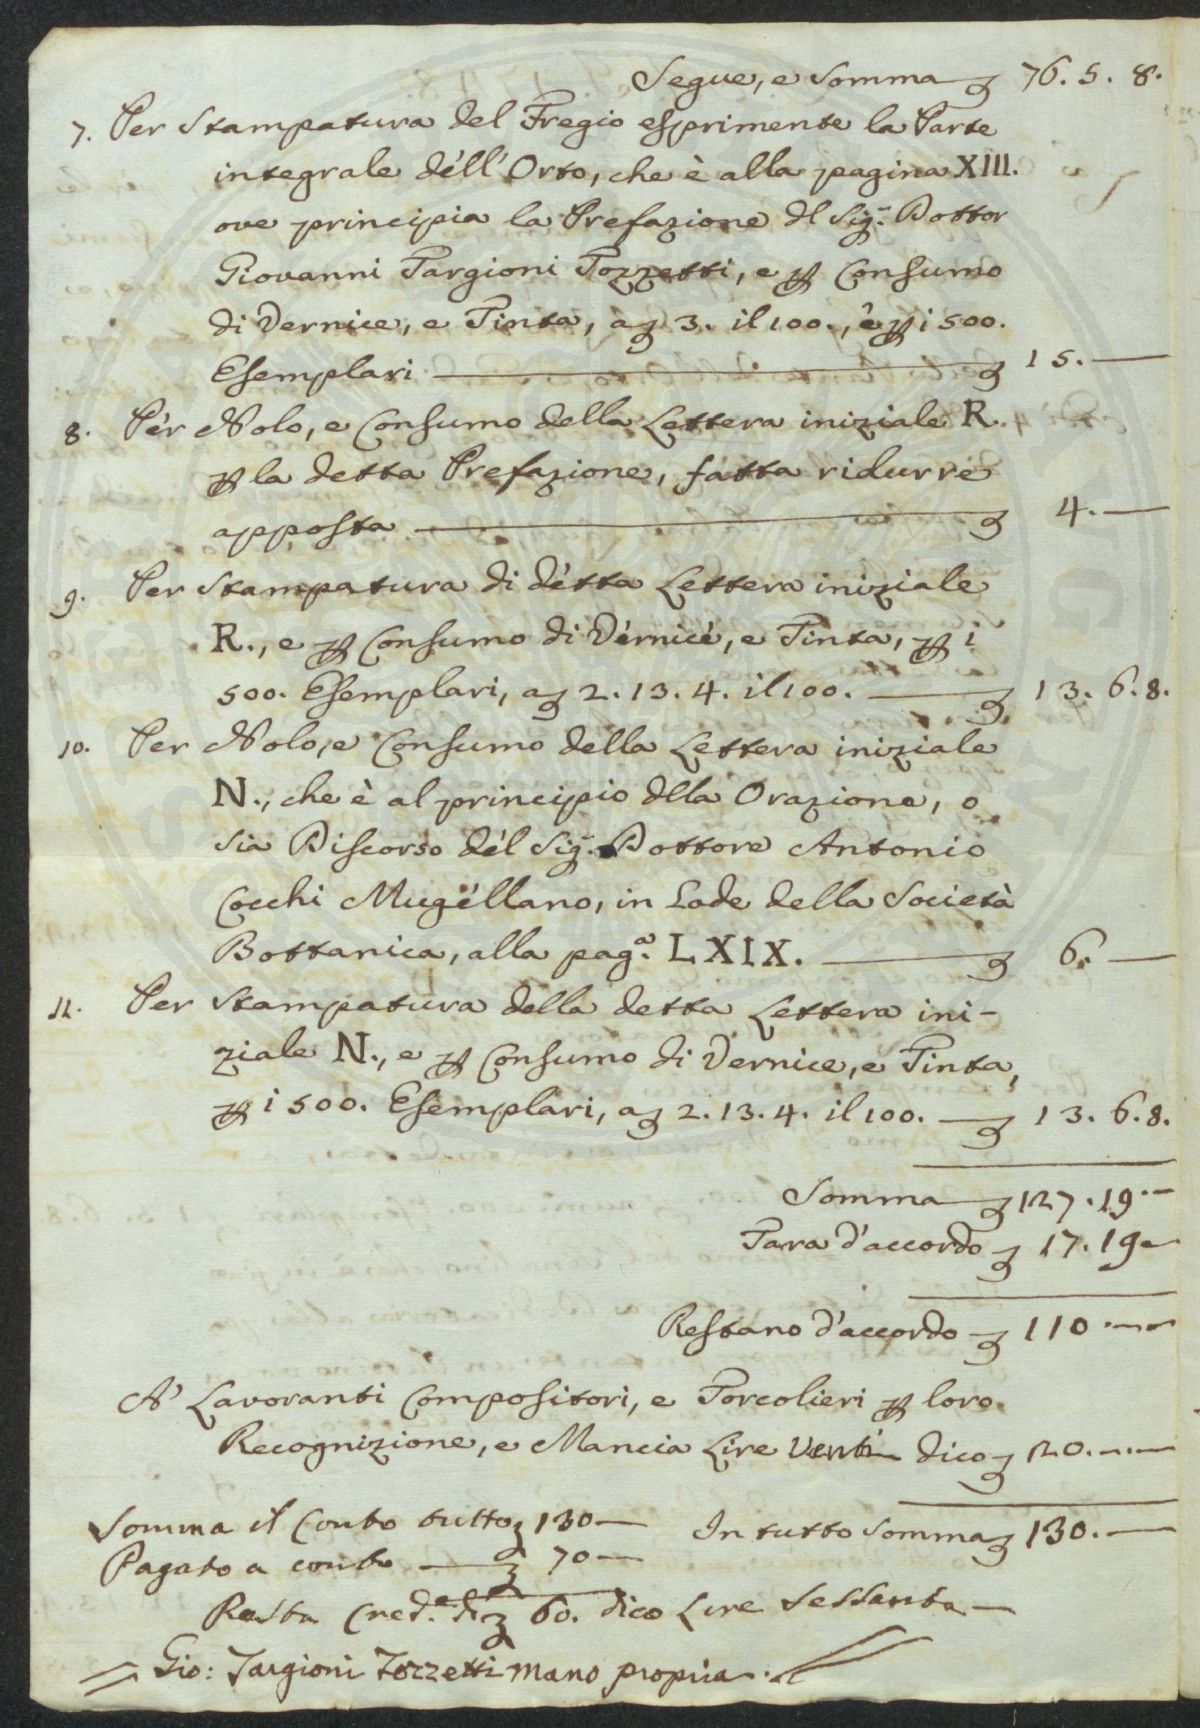 Segue, e Somma £ 76. 5. 8.
7. Per Stampatura del Fregio esprimente la Parte
integrale dell' Orto, che è alla pagina XIII.
ove principia la Prefazione dl Sig.r Dottor
Giovanni Targioni Tozzetti, e ꝑ Consumo
di Vernice, e Tinta, a £ 3. il 100., e ꝑ i 500.
Esemplari £ 15.—
8. Per Nolo, e Consumo della Lettera iniziale R.
ꝑ la detta Prefazione, fatta ridurre
apposta £ 4.—
9. Per Stampatura di detta Lettera iniziale
R., e ꝑ Consumo di Vernice, e Tinta, ꝑ i
500. Esemplari, a £ 2. 13. 4. il 100. — £ 13. 6. 8.
10. Per Nolo, e Consumo della Lettera iniziale
N., che è al principio dlla Orazione, o
sia Discorso del Sig.r Dottore Antonio
Cocchi Mugellano, in Lode della Società
Bottanica, alla pag.a LXIX. — £ 6.—
11. Per Stampatura della detta Lettera ini-
ziale N., e ꝑ Consumo di Vernice, e Tinta,
ꝑ i 500. Esemplari, a £ 2. 13. 4. il 100. — £ 13. 6. 8.
Somma £ 127. 19.—
Tara d'accordo £ 17. 19—
Restano d'accordo £ 110.—
A' Lavoranti Compositori, e Torcolieri ꝑ loro
Recognizione, e Mancia Lire Venti dico £ 20.—
Somma il Conto tutto £ 130— In tutto Somma £ 130.—
Pagato a conto — £ 70—
Resta Cred.e di £ 60. dico Lire Sessanta—
Gio: Targioni Tozzetti mano propria.